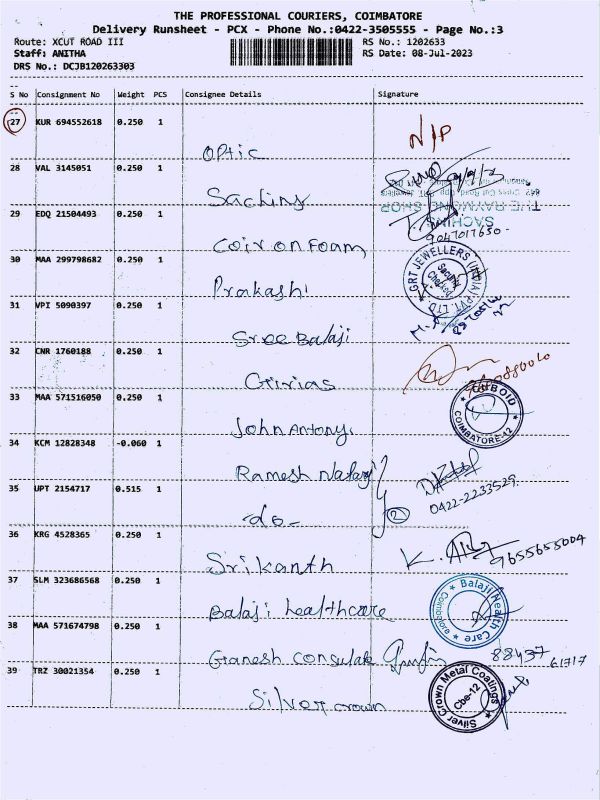 THE PROFESSIONAL COURIERS, COIMBATORE
Delivery Runsheet - PCX - Phone No.:0422-3505555 - Page No.:3
Route: XCUT ROAD III RS No.: 1202633
Staff: ANITHA RS Date: 08-Jul-2023
DRS No.: DCJB120263303
S No Consignment No Weight PCS Consignee Details Signature
27 KUR 694552618 0.250 1 Optic N/P
28 VAL 3145051 0.250 1 Saching
SACHINS
THE RAYMOND SHOP
29 EDQ 21504493 0.250 1 Coir on Foam 9047017630-
30 MAA 299798682 0.250 1 Prakash
GRT JEWELLERS (INDIA) PVT. LTD
Security Checked
31 VPI 5090397 0.250 1 Sree Balaji
32 CNR 1760188 0.250 1
33 MAA 571516050 0.250 1 John Antony
COIMBATORE-12
34 KCM 12828348 -0.060 1 Ramesh Nataraj
35 UPT 2154717 0.515 1 -do- 2 0422-2233529
36 KRG 4528365 0.250 1 Srikanth 9655655004
37 SLM 323686568 0.250 1 Balaji healthcare
Balaji Health Care Coimbatore
38 MAA 571674798 0.250 1 Ganesh consulate 88437 61717
39 TRZ 30021354 0.250 1 Silver crown
Silver Crown Metal Coatings Cbe-12